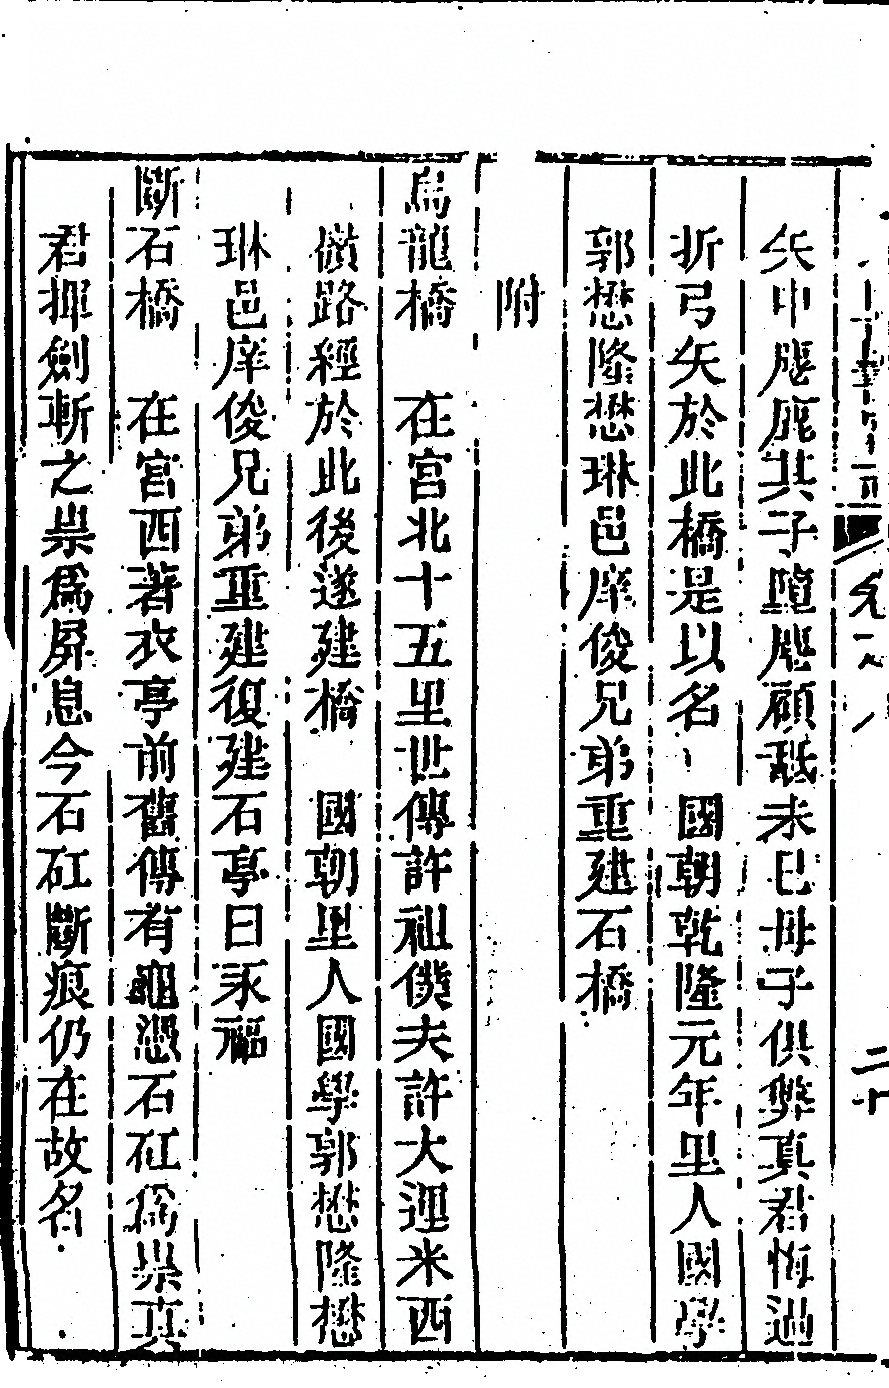 矢中麀鹿其子墮麀顧舐未已母子俱斃真君悔過
折弓矢於此橋是以名　國朝乾隆元年里人國學
郭懋隆懋琳邑庠俊兄弟重建石橋
附
烏龍橋　在宮北十五里世傳許祖僕夫許大運米西
嶺路經於此後遂建橋　國朝里人國學郭懋隆懋
琳邑庠俊兄弟重建復建石亭曰永福
斷石橋　在宮西著衣亭前舊傳有龜憑石矼為祟真
君揮劍斬之祟爲屏息今石矼斷痕仍在故名